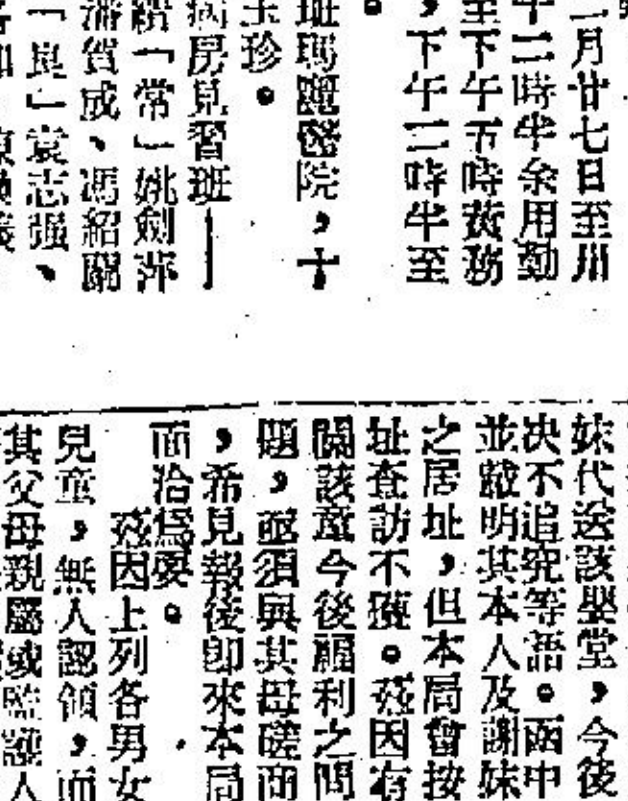 二月廿七日至卅
十二時半余用勤
至下午五時黃務
，下午二時半至
。
址瑪麗醫院，十
玉珍。
病房見習班——
續「常」姚劍萍
潘賀成、馮紹關
「崑」袁志强、
妹代送該嬰堂，今後
决不追究等語。函中
並戴明其本人及謝妹
之居址，但本局曾按
址查訪不獲。茲因有
關該童今後福利之問
題，亟須與其母磋商
，希見報後卽來本局
面洽爲要。
茲因上列各男女
兒童，無人認領，而
其父母親屬或監護人